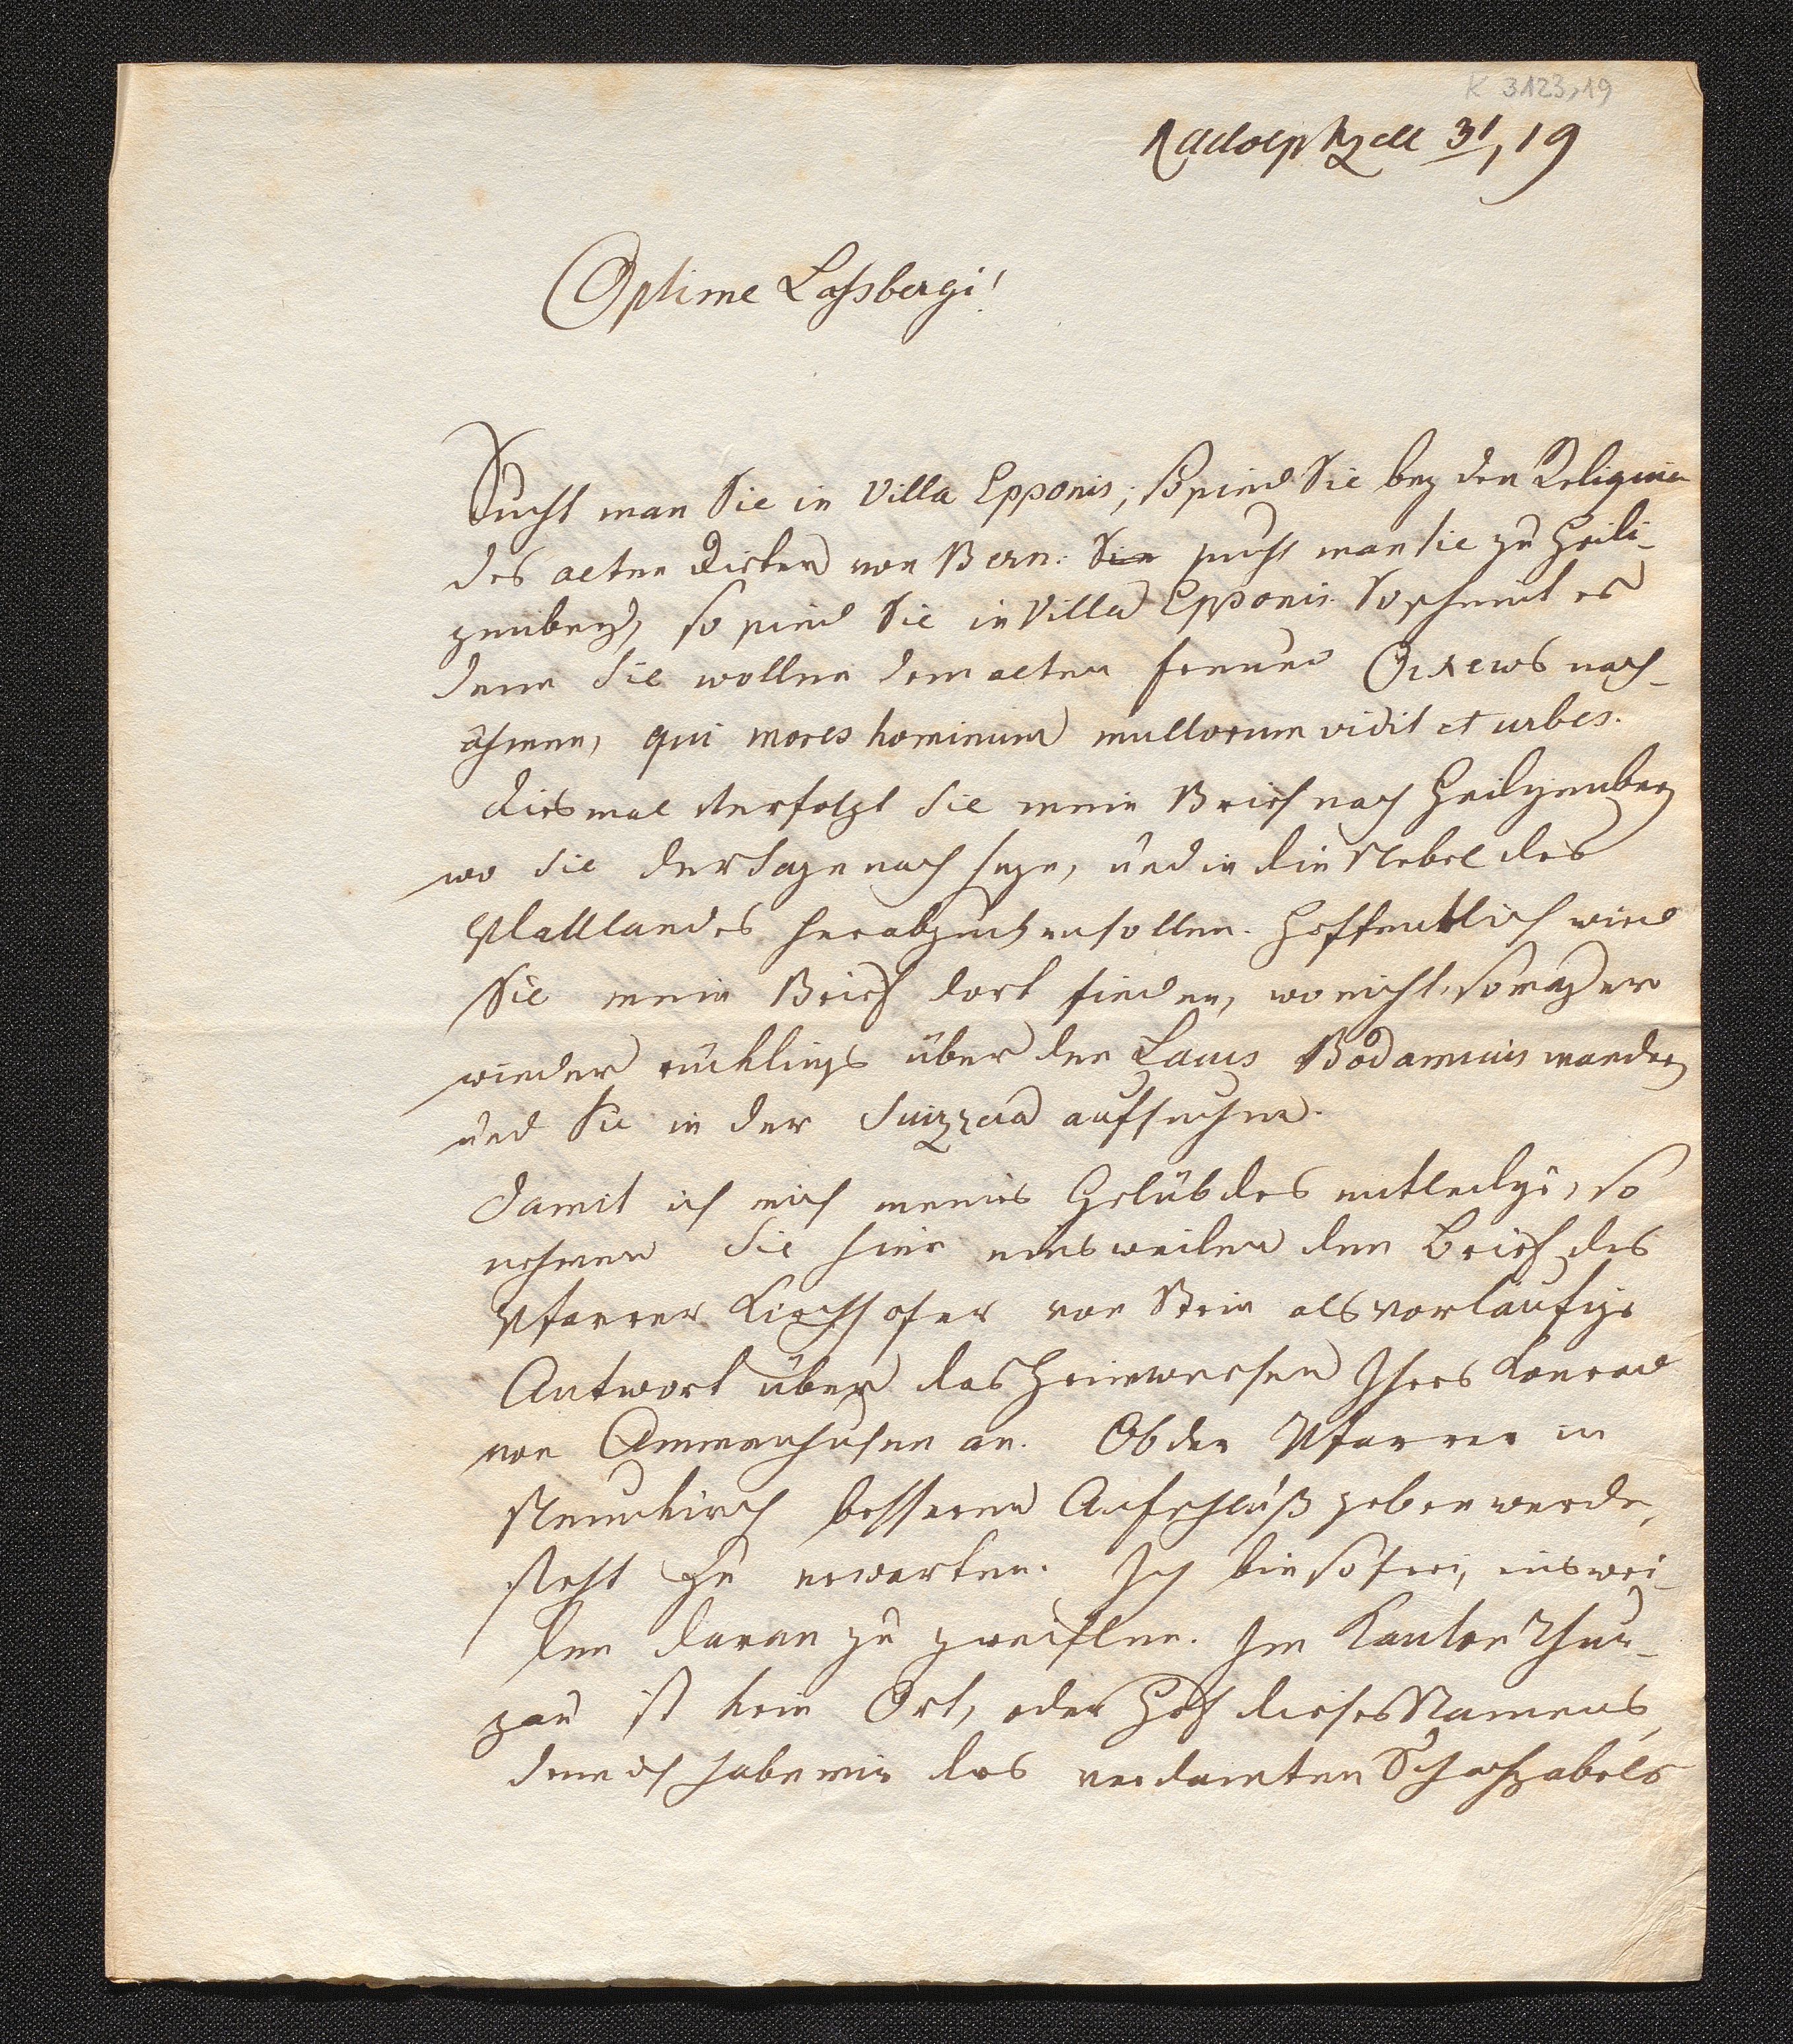 K 3123,19
Radolphzell 31, 19
Optime Lassbergi!
Sucht man Sie in Villa Epponis; so sind Sie bey den Reliquien
des alten Dieters von Bern: Sie sucht man sie zu Heili-
genberg, so sind Sie in Villa Epponis. So scheint es
denn Sie wollen dem alten Freund nach-
ahmen, qui mores hominum multorum vidit et urbes.
Diesmal verfolgt Sie mein Brief nach Heiligenberg
wo Sie der Sage nach seyn, und in die Nebel des
Plattlandes herabgucken sollen. Hoffentlich wird
Sie mein Brief dort finden, wo nicht, so mag er
wieder rücklings über den Lacus Bodamicus wandern
und Sie in der Suizzera aufsuchen.
Damit ich mich meines Gelübdes entledige, so
nehmen Sie hier einsweilen den Brief des
Pfarrer Kirchhofer von Stein als vorläufige
Antwort über das Heimwesen Ihres Konrad
von Ammenhusen an. Ob der Pfarrer in
Neunkirch besseren Aufschluß geben werde,
steht zu erwarten. Ich bin so frei, einswei-
len daran zu zweiflen. Im Kanton Thur-
gau ist kein Ort, oder Hof dieses Namens,
denn ich habe mir des verdamten Schachzabels